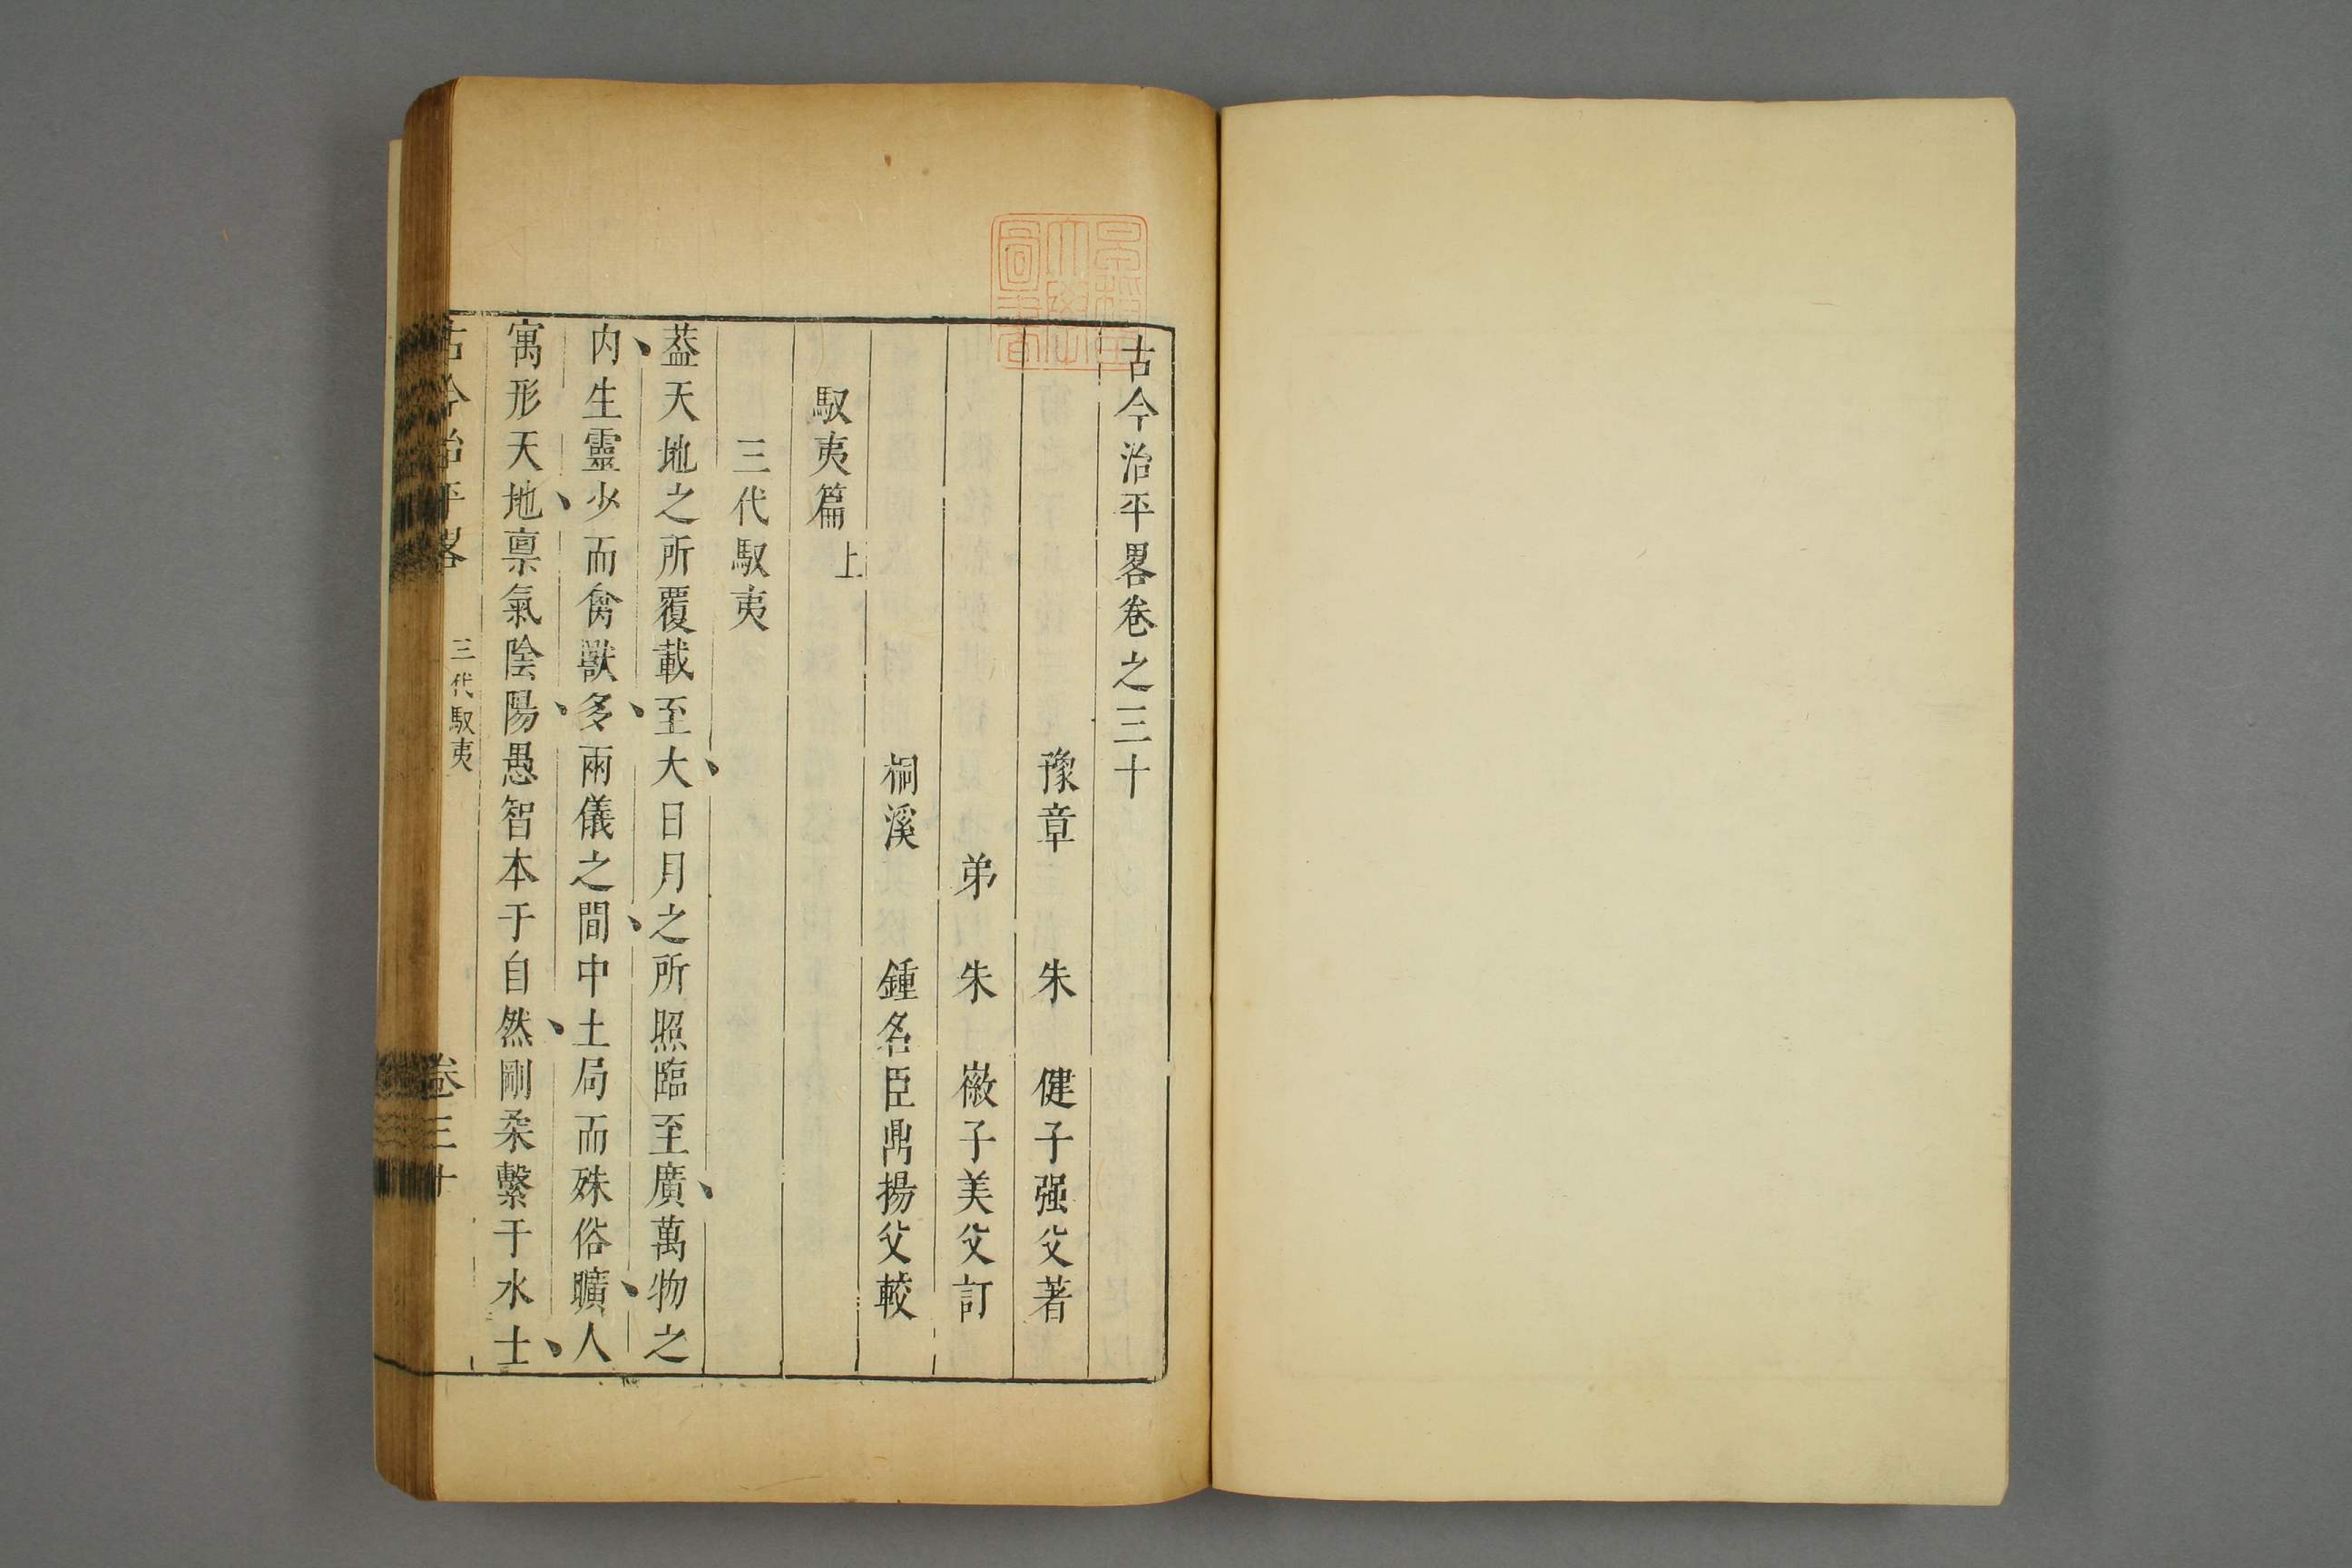 古今治平畧卷之三十
豫章 朱 健子强父著
弟 朱 徽子美父訂
桐溪 鍾名臣鼎揚父較
馭夷篇上
三代馭夷
葢天地之所覆載至大日月之所照臨至廣萬物之
内生靈少而禽獸多兩儀之間中土局而殊俗曠人
寓形天地禀氣陰陽愚智本于自然剛柔繫于水土
古今治平畧 三代馭夷 卷三十